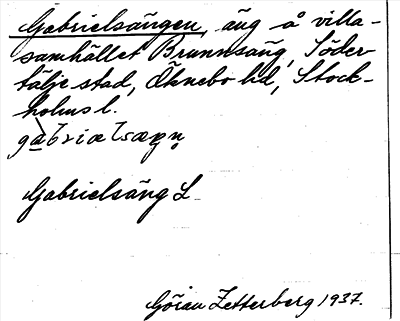 Gabrielsängen, äng å villa-
samhället Brunnsäng, Söder-
tälje stad, Öknebo hd, Stock-
holms l.
Gabrielsäng L
Göran Zetterberg 1937.